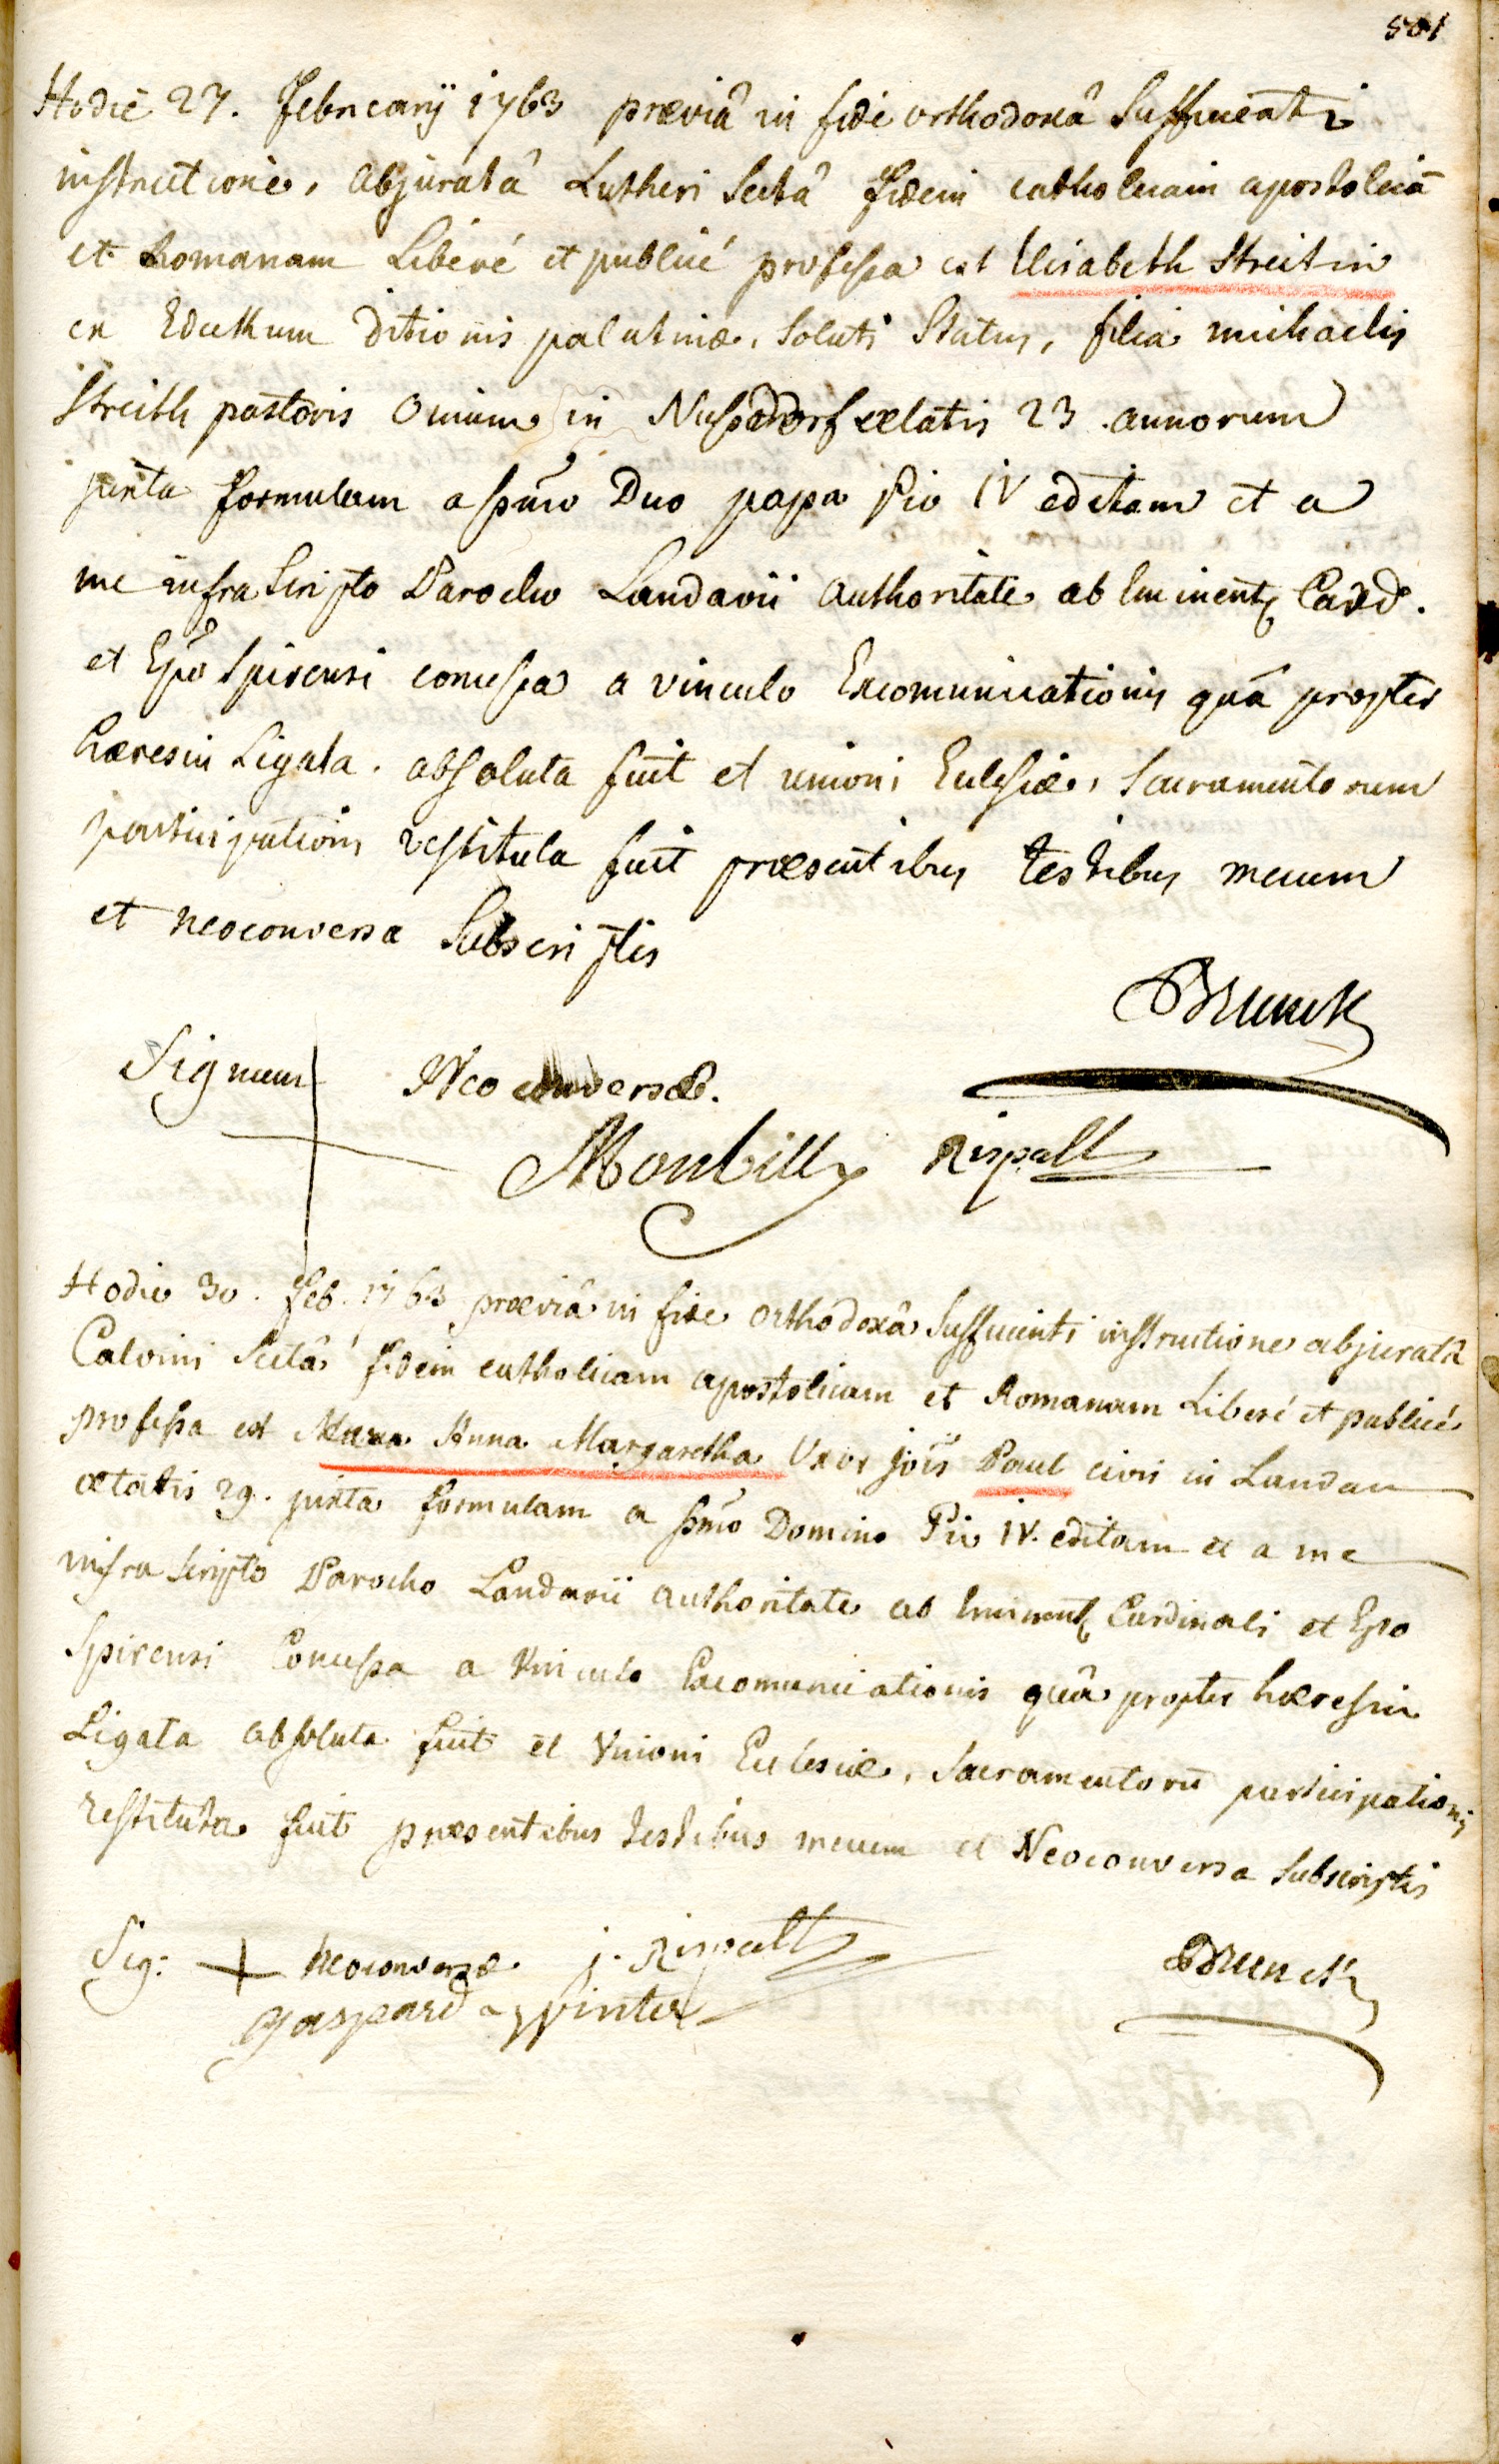 501
Hodie 27. februarÿ 1763 præviâ in fide orthodoxâ Sufficienti
instructione, abjuratâ Lutheri Sectâ fidem catholicam apostolicā
et Romanam Liberé et publicé professa est Elisabeth Streitin
ex Edickum ditionis palatinæ, Soluti Status, filia michaelis
Streith pastoris ovium in Nusdorf ætatis 23 annorum
juxta formulam a ssmo Dno papa Pio IV editam et a
me infra Scripto Parocho Landavii authoritate ab Eminent Card.
et Epo Spirensi concessa a vinculo Excomunicationis quâ propter
hæresin Ligata. absoluta fuit et unioni Ecclesiæ, Sacramentorum
participationi restituta fuit præsentibus testibus mecum
et neoconversa Subscriptis
Brunck
Signum Neo conversæ.
Monbilly Rispall
Hodie 30. feb. 1763 præviâ in fide orthodoxâ Sufficienti instructione abjuratâ
Calvini Sectâ fidem catholicam apostolicam et Romanam Liberé et publicé
professa est Maria Anna Margaretha Uxor jois Paul civis in Landau
ætatis 29. juxta formulam a ssmo Domino Pio IV. editam et a me
infra Scripto Parocho Landavii authoritate ab Eminent Cardinali et Epo
Spirensi Concessa a Vinculo Excomunicationis quâ propter hæresin
Ligata absoluta fuit et Unioni Ecclesiæ, Sacramentorū participationi
restituta fuit præsentibus testibus mecum et Neoconversa Subscriptis
Sig: neoconversæ j. Rispall Brunck
gaspard Winter